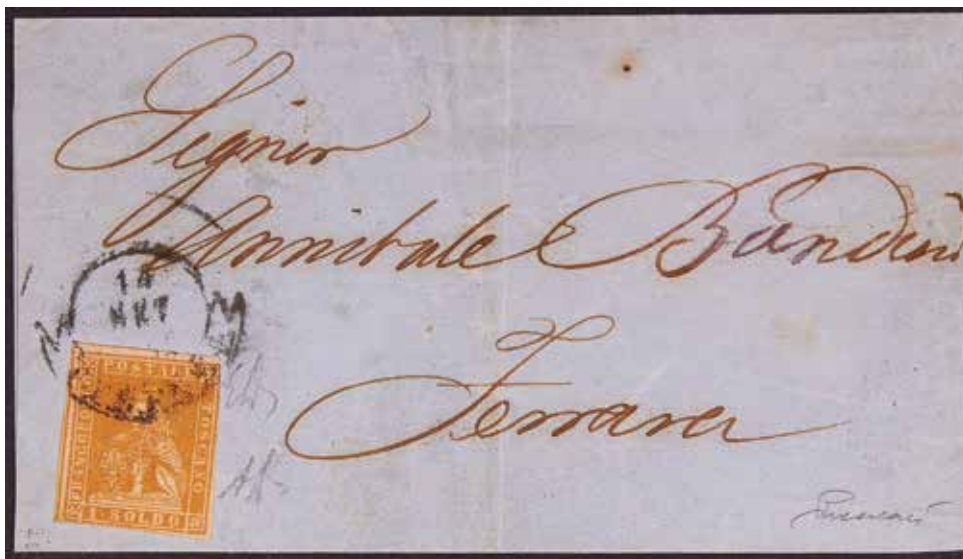 Signor
Annibale Bandini
Ferrara
FRANCOBOLLO
POSTALE
TOSCANO
1 SOLDO